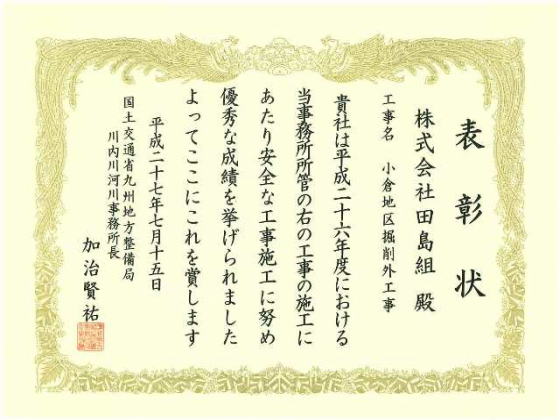 表彰状
株式会社田島組 殿
工事名 小倉地区掘削外工事
貴社は平成二十六年度における
当事務所所管の右の工事の施工に
あたり安全な工事施工に努め
優秀な成績を挙げられました
よってここにこれを賞します
平成二十七年七月十五日
国土交通省九州地方整備局
川内川河川事務所長
加治賢祐